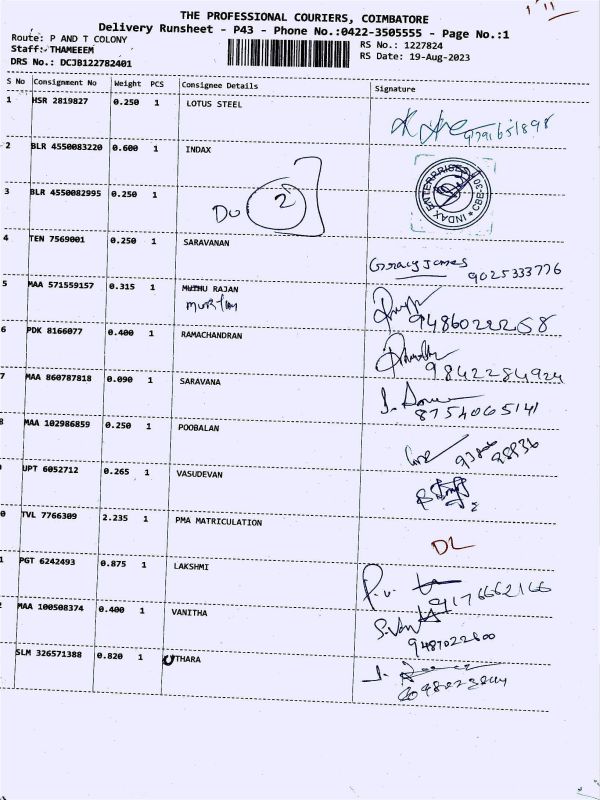 THE PROFESSIONAL COURIERS, COIMBATORE
Delivery Runsheet - P43 - Phone No.:0422-3505555 - Page No.:1
Route: P AND T COLONY
RS No.: 1227824
Staff: THAMEEEM
RS Date: 19-Aug-2023
DRS No.: DCJB122782401
S No Consignment No Weight PCS Consignee Details Signature
1 HSR 2819827 0.250 1 LOTUS STEEL
9791651898
2 BLR 4550083220 0.600 1 INDAX
INDAX ENTERPRISES CBE-30
3 BLR 4550082995 0.250 1
Do 2
4 TEN 7569001 0.250 1 SARAVANAN
Gracy James
9025333776
5 MAA 571559157 0.315 1 MUTHU RAJAN
9486022258
6 PDK 8166077 0.400 1 RAMACHANDRAN
9842284924
7 MAA 860787818 0.090 1 SARAVANA
8754065141
8 MAA 102986859 0.250 1 POOBALAN
9 UPT 6052712 0.265 1 VASUDEVAN
0 TVL 7766309 2.235 1 PMA MATRICULATION
DL
1 PGT 6242493 0.875 1 LAKSHMI
9176662166
2 MAA 100508374 0.400 1 VANITHA
9487022600
SLM 326571388 0.820 1 UTHARA